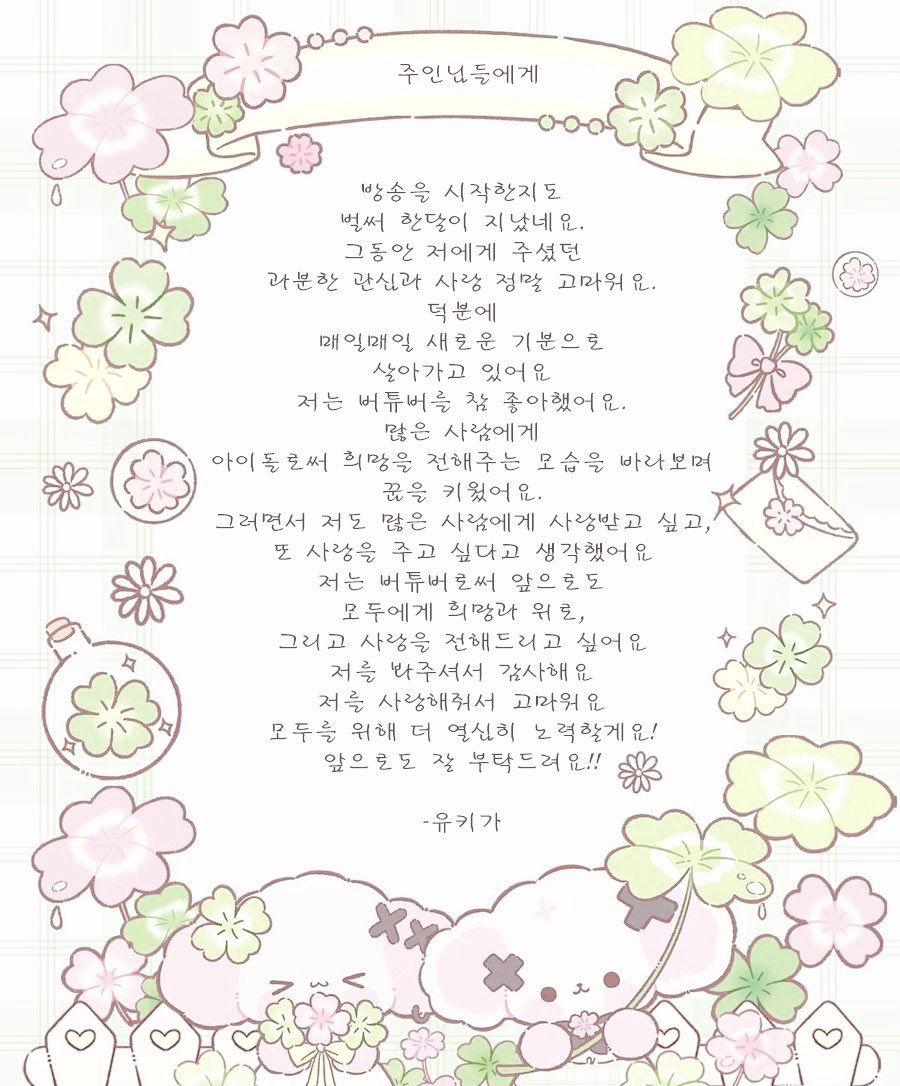 주인님들에게
방송을 시작한지도
벌써 한달이 지났네요.
그동안 저에게 주셨던
과분한 관심과 사랑 정말 고마워요.
덕분에
매일매일 새로운 기분으로
살아가고 있어요
저는 버튜버를 참 좋아했어요.
많은 사람에게
아이돌로써 희망을 전해주는 모습을 바라보며
꿈을 키웠어요.
그러면서 저도 많은 사람에게 사랑받고 싶고,
또 사랑을 주고 싶다고 생각했어요
저는 버튜버로써 앞으로도
모두에게 희망과 위로,
그리고 사랑을 전해드리고 싶어요
저를 봐주셔서 감사해요
저를 사랑해줘서 고마워요
모두를 위해 더 열심히 노력할게요!
앞으로도 잘 부탁드려요!!
-유키가